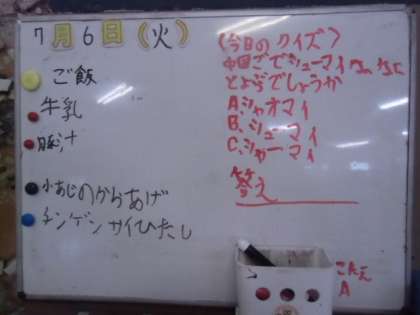 7月6日(火)
ご飯
牛乳
豚汁
小あじのからあげ
チンゲンサイひたし
(今日のクイズ)
中国ごでシューマイ
とよぶでしょうか
A.シャオマイ
B.シューマイ
C.シャーマイ
答え
こたえ
A